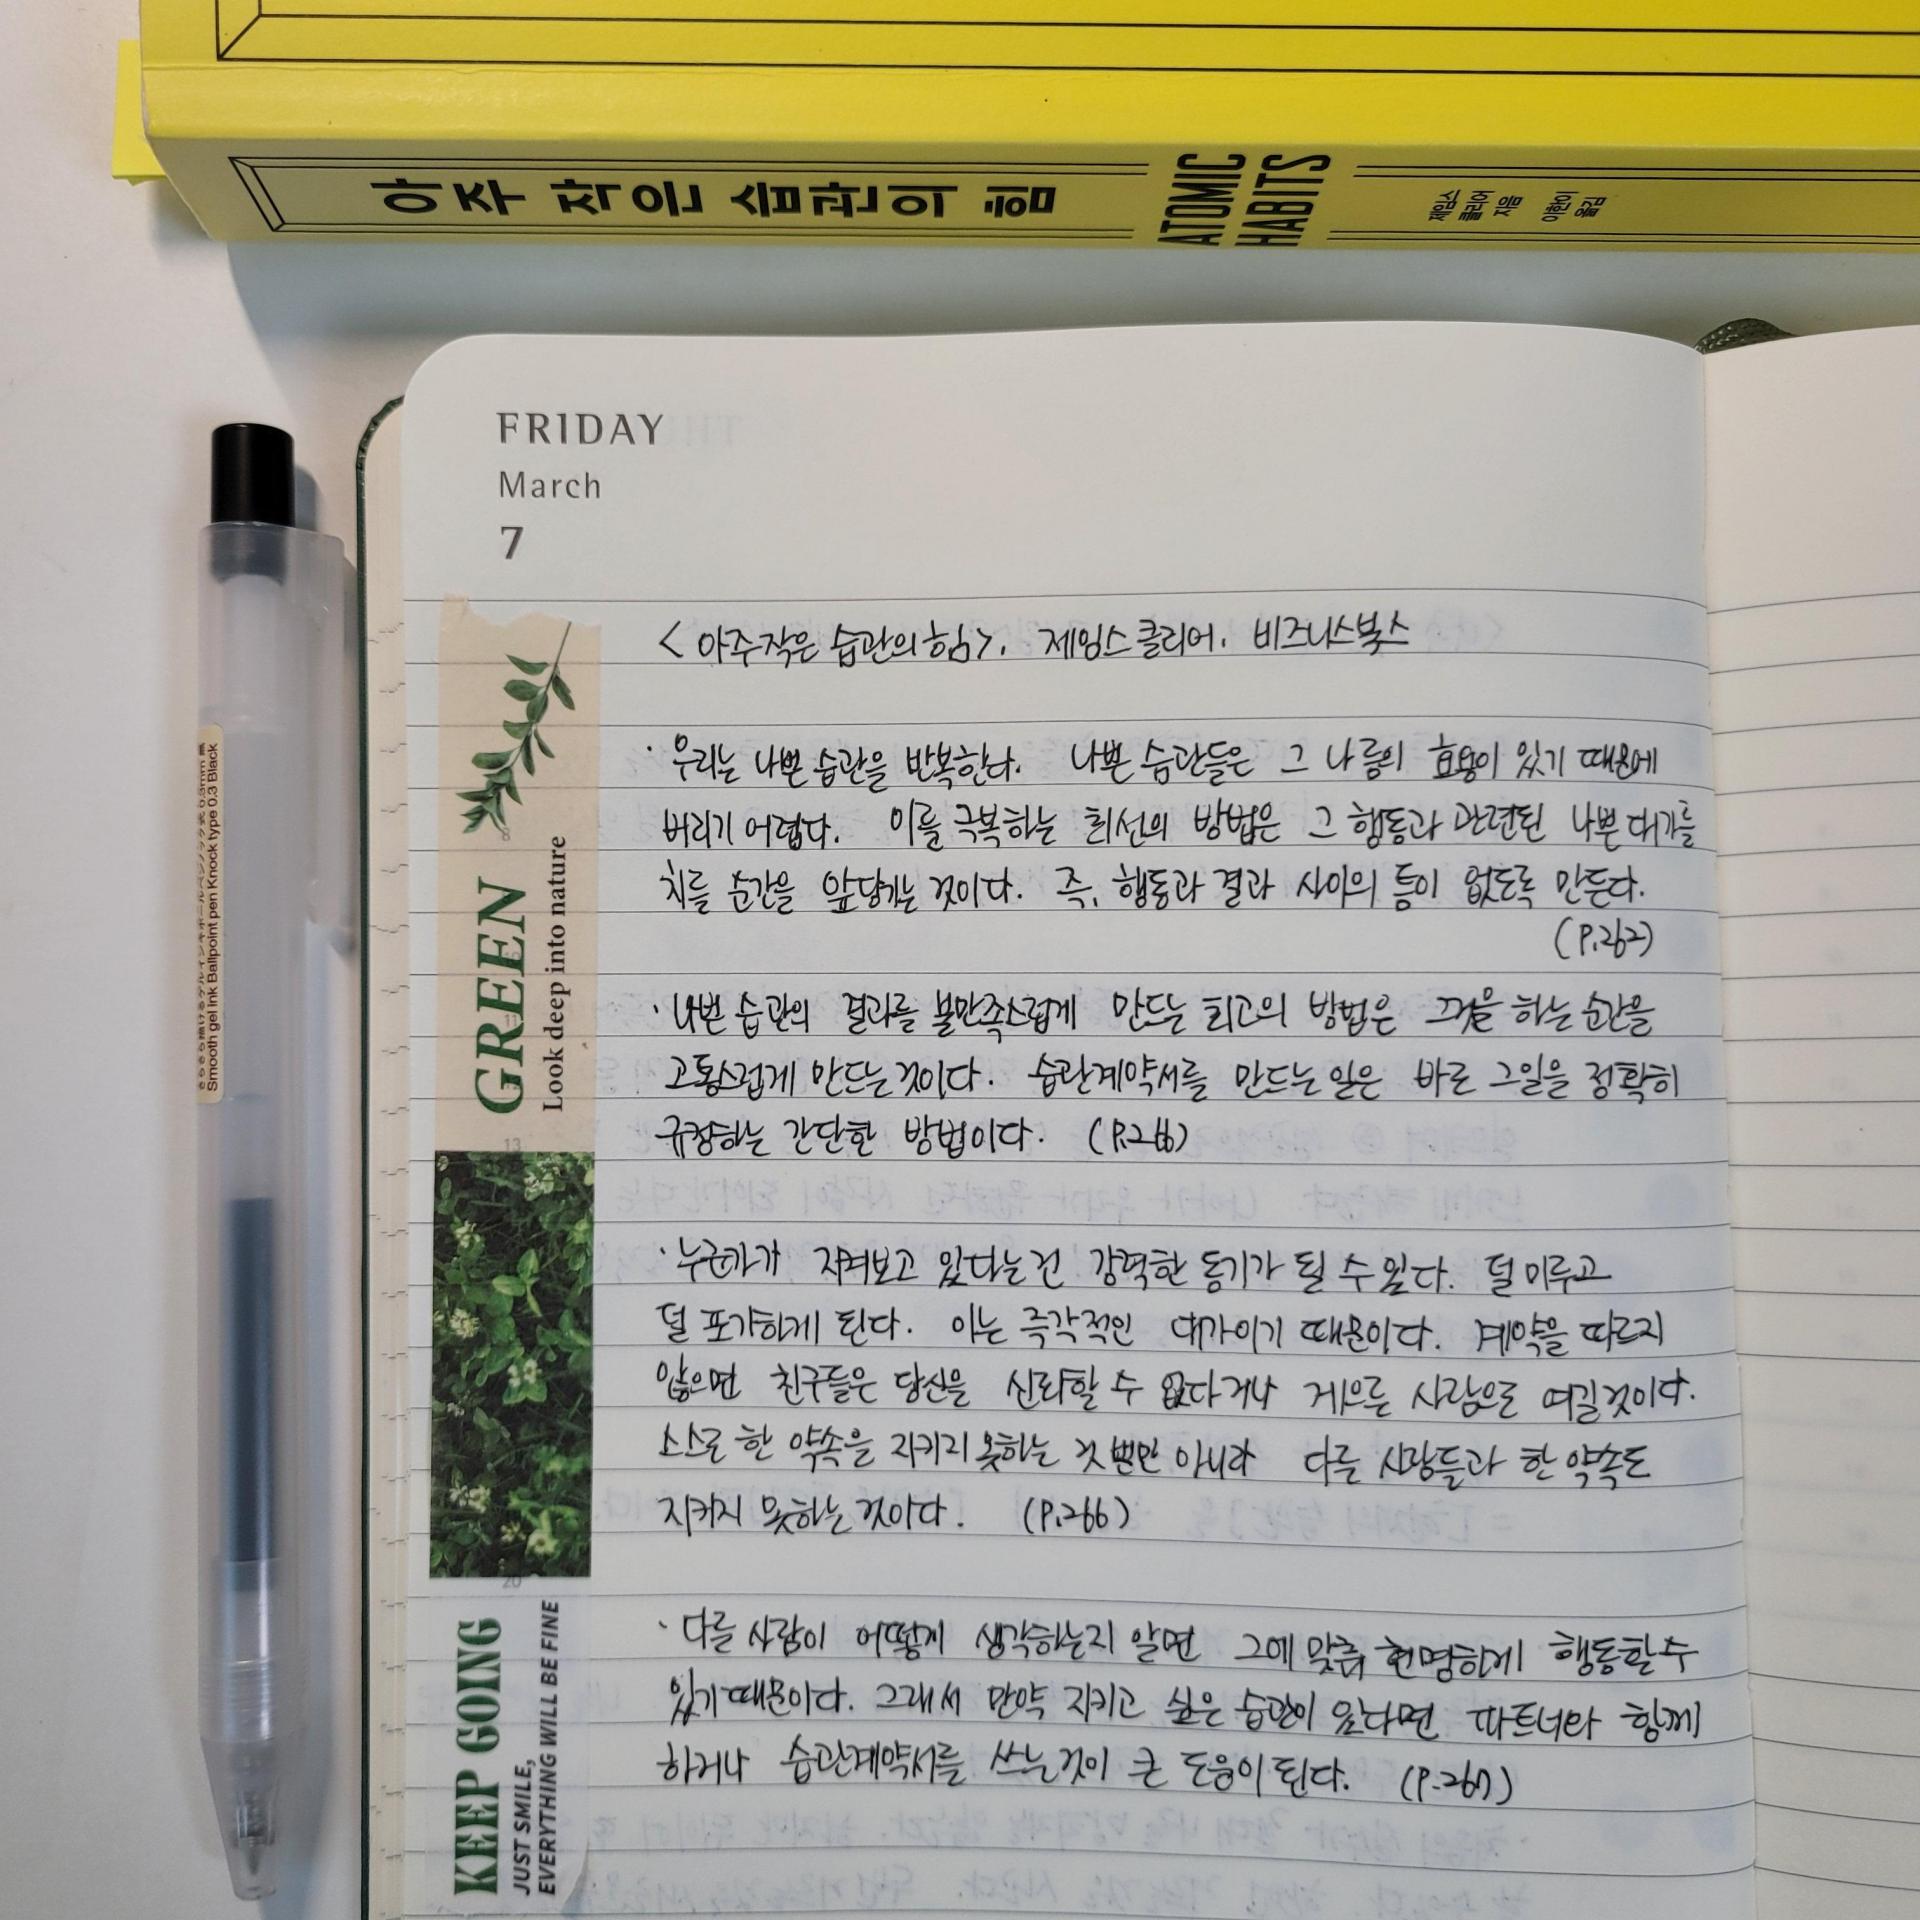 아주 작은 습관의 힘
ATOMIC
HABITS
제임스
클리어
지음
이한이
옮김
FRIDAY
March
7
<아주 작은 습관의 힘>. 제임스 클리어. 비즈니스북스
· 우리는 나쁜 습관을 반복한다. 나쁜 습관들은 그 나름의 효용이 있기 때문에
버리기 어렵다. 이를 극복하는 최선의 방법은 그 행동과 관련된 나쁜 대가를
치를 순간을 앞당기는 것이다. 즉, 행동과 결과 사이의 틈이 없도록 만든다.
(P.262)
· 나쁜 습관의 결과를 불만족스럽게 만드는 최고의 방법은 그것을 하는 순간을
고통스럽게 만드는 것이다. 습관계약서를 만드는 일은 바로 그일을 정확히
규정하는 간단한 방법이다. (P.266)
· 누군가가 지켜보고 있다는 건 강력한 동기가 될 수 있다. 덜 미루고
덜 포기하게 된다. 이는 즉각적인 대가이기 때문이다. 계약을 따르지
않으면 친구들은 당신을 신뢰할 수 없다거나 게으른 사람으로 여길것이다.
스스로 한 약속을 지키지 못하는 것 뿐만 아니라 다른 사람들과 한 약속도
지키지 못하는 것이다. (P.266)
· 다른 사람이 어떻게 생각하는지 알면 그에 맞춰 현명하게 행동할 수
있기 때문이다. 그래서 만약 지키고 싶은 습관이 있다면 파트너와 함께
하거나 습관계약서를 쓰는것이 큰 도움이 된다. (P.267)
GREEN
Look deep into nature
13
20
KEEP GOING
JUST SMILE,
EVERYTHING WILL BE FINE
Smooth gel Ink Ballpoint pen Knock type 0.3 Black